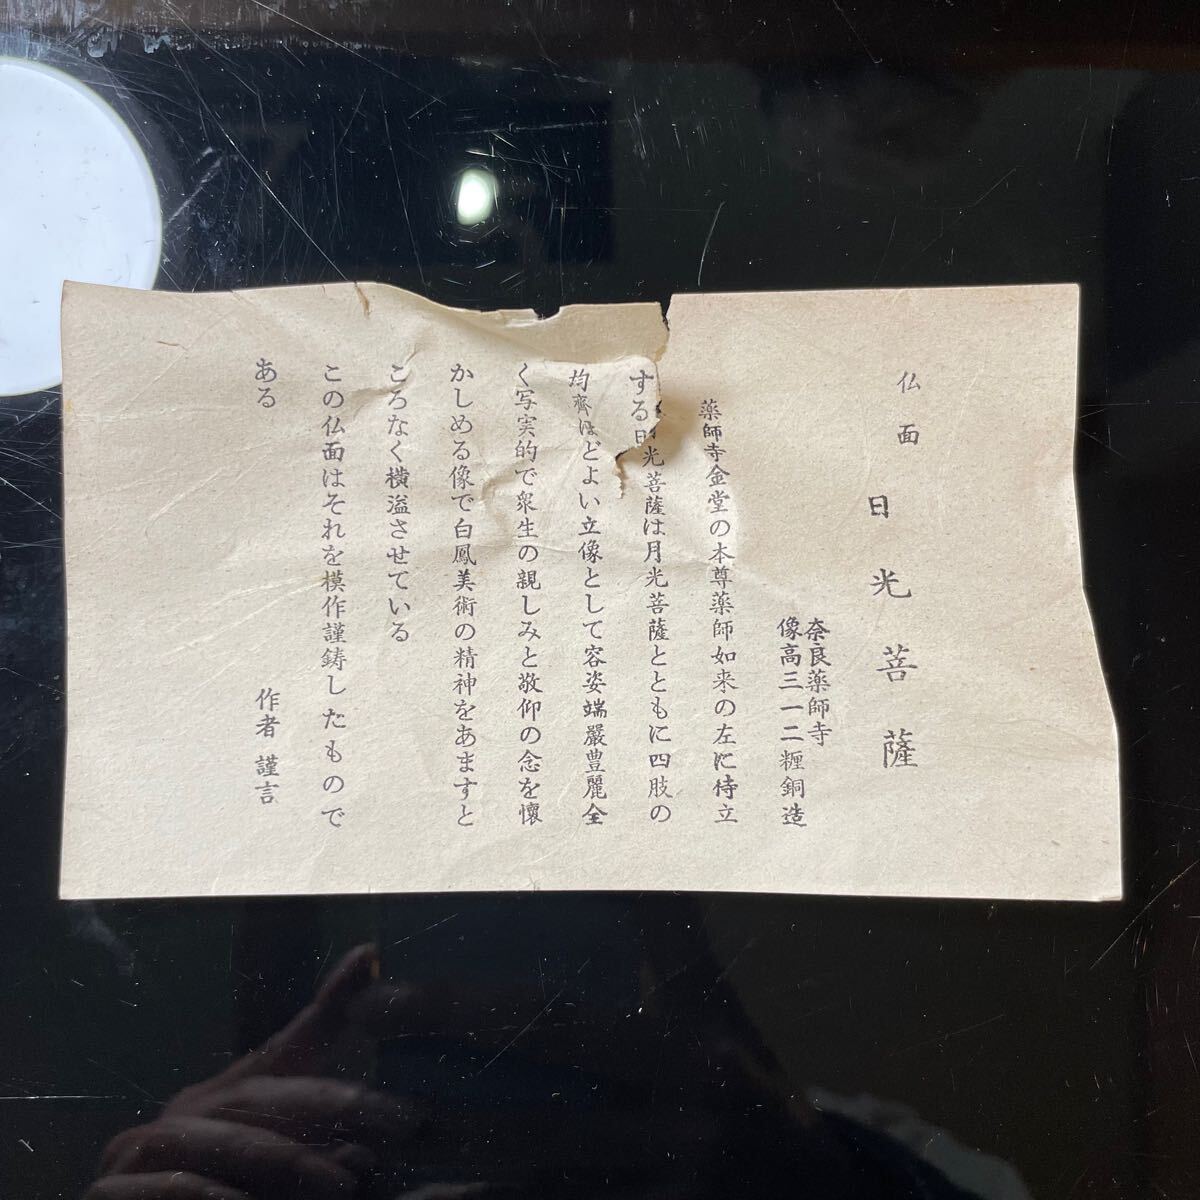 仏面
日光菩薩
奈良薬師寺
像高三一二糎銅造
薬師寺金堂の本尊薬師如来の左に侍立
する日光菩薩は月光菩薩とともに四肢の
均齊ほどよい立像として容姿端嚴豊麗全
く写実的で衆生の親しみと敬仰の念を懐
かしめる像で白鳳美術の精神をあますと
ころなく横溢させている
この仏面はそれを模作謹鋳したもので
ある
作者 謹言